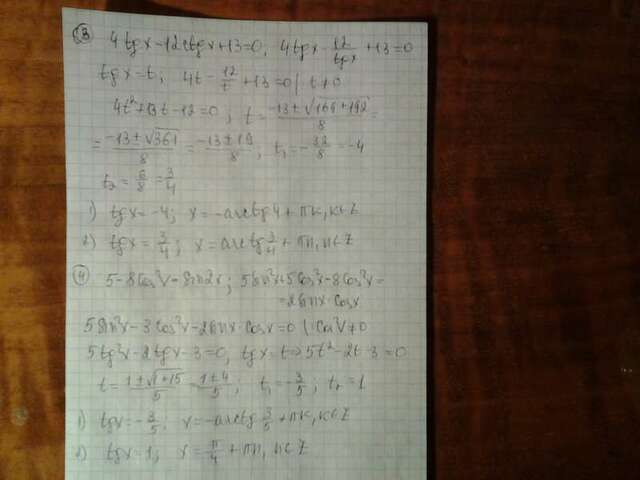 ③ 4tgx-12ctgx+13=0; 4tgx-12/tgx+13=0
tgx=t; 4t-12/t+13=0 | t≠0
4t²+13t-12=0; t=(-13±√(169+192))/8=
=(-13±√361)/8=(-13±19)/8; t₁=-32/8=-4
t₂=6/8=3/4
1) tgx=-4; x=-arctg4+πk, k∈Z
2) tgx=3/4; x=arctg3/4+πn, n∈Z
④ 5-8cos²x=sin2x; 5sin²x+5cos²x-8cos²x=
=2sinx·cosx
5sin²x-3cos²x-2sinx·cosx=0 |:cos²x≠0
5tg²x-2tgx-3=0, tgx=t⇒5t²-2t-3=0
t=(1±√(1+15))/5=(1±4)/5; t₁=-3/5; t₂=1
1) tgx=-3/5; x=-arctg3/5+πk, k∈Z
2) tgx=1; x=π/4+πn, n∈Z